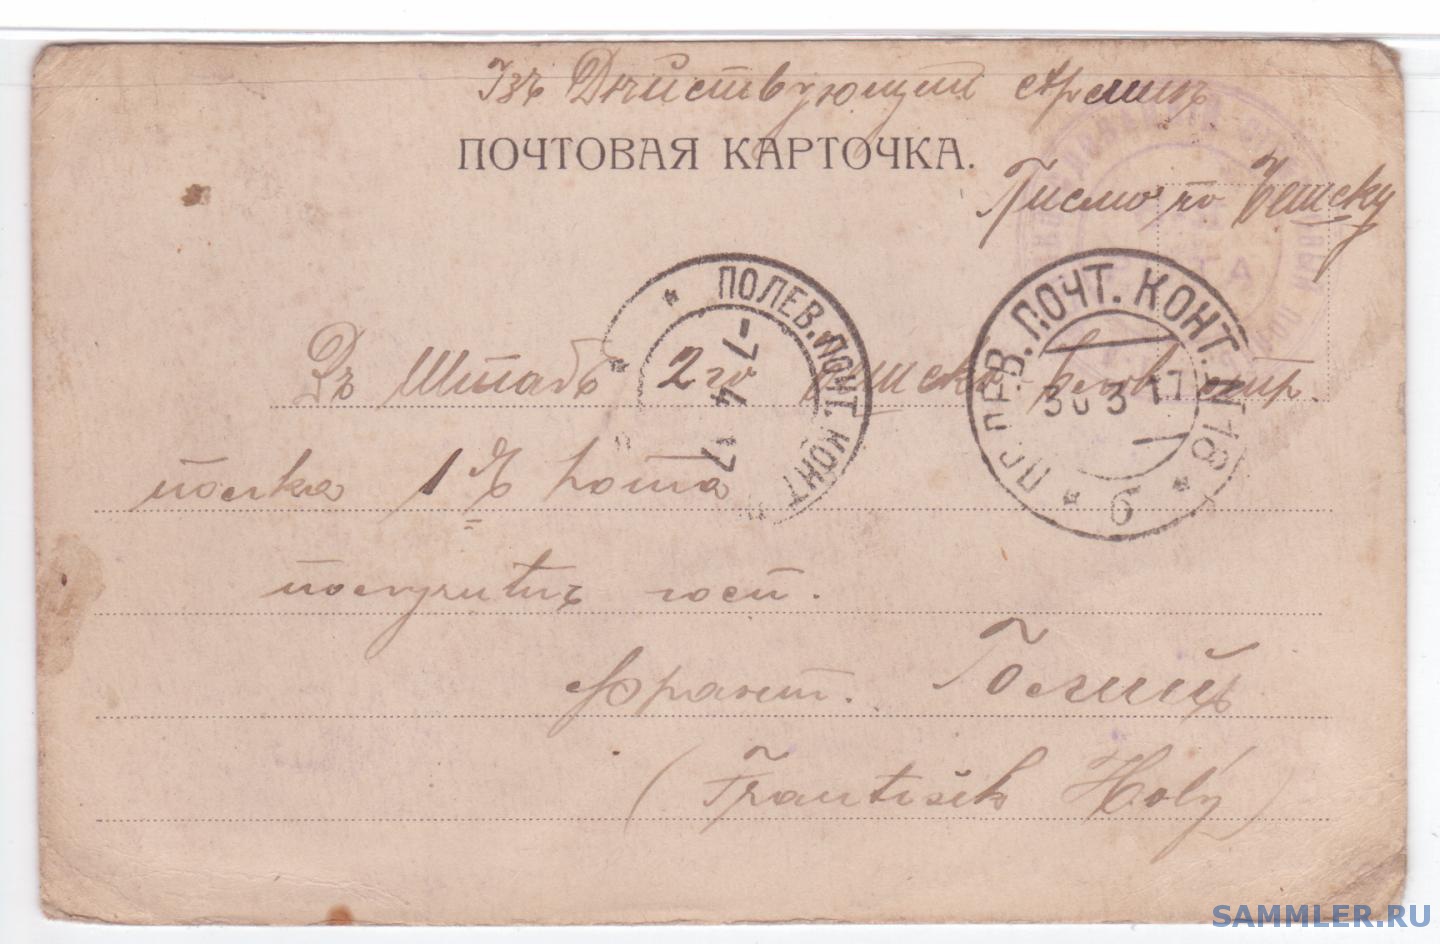 Изъ Дѣйствующий Армии
ПОЧТОВАЯ КАРТОЧКА.
Писмо по Чешску
ПОЛЕВ. ПОЧТ. КОНТ
-7 4 17
ПОЧТ. КОНТ. №18
30 3 17
б
Въ Штабъ 2го стр.
полка 1я рота
получитъ госп.
Франт. Голий
(František Holý)
SAMMLER.RU